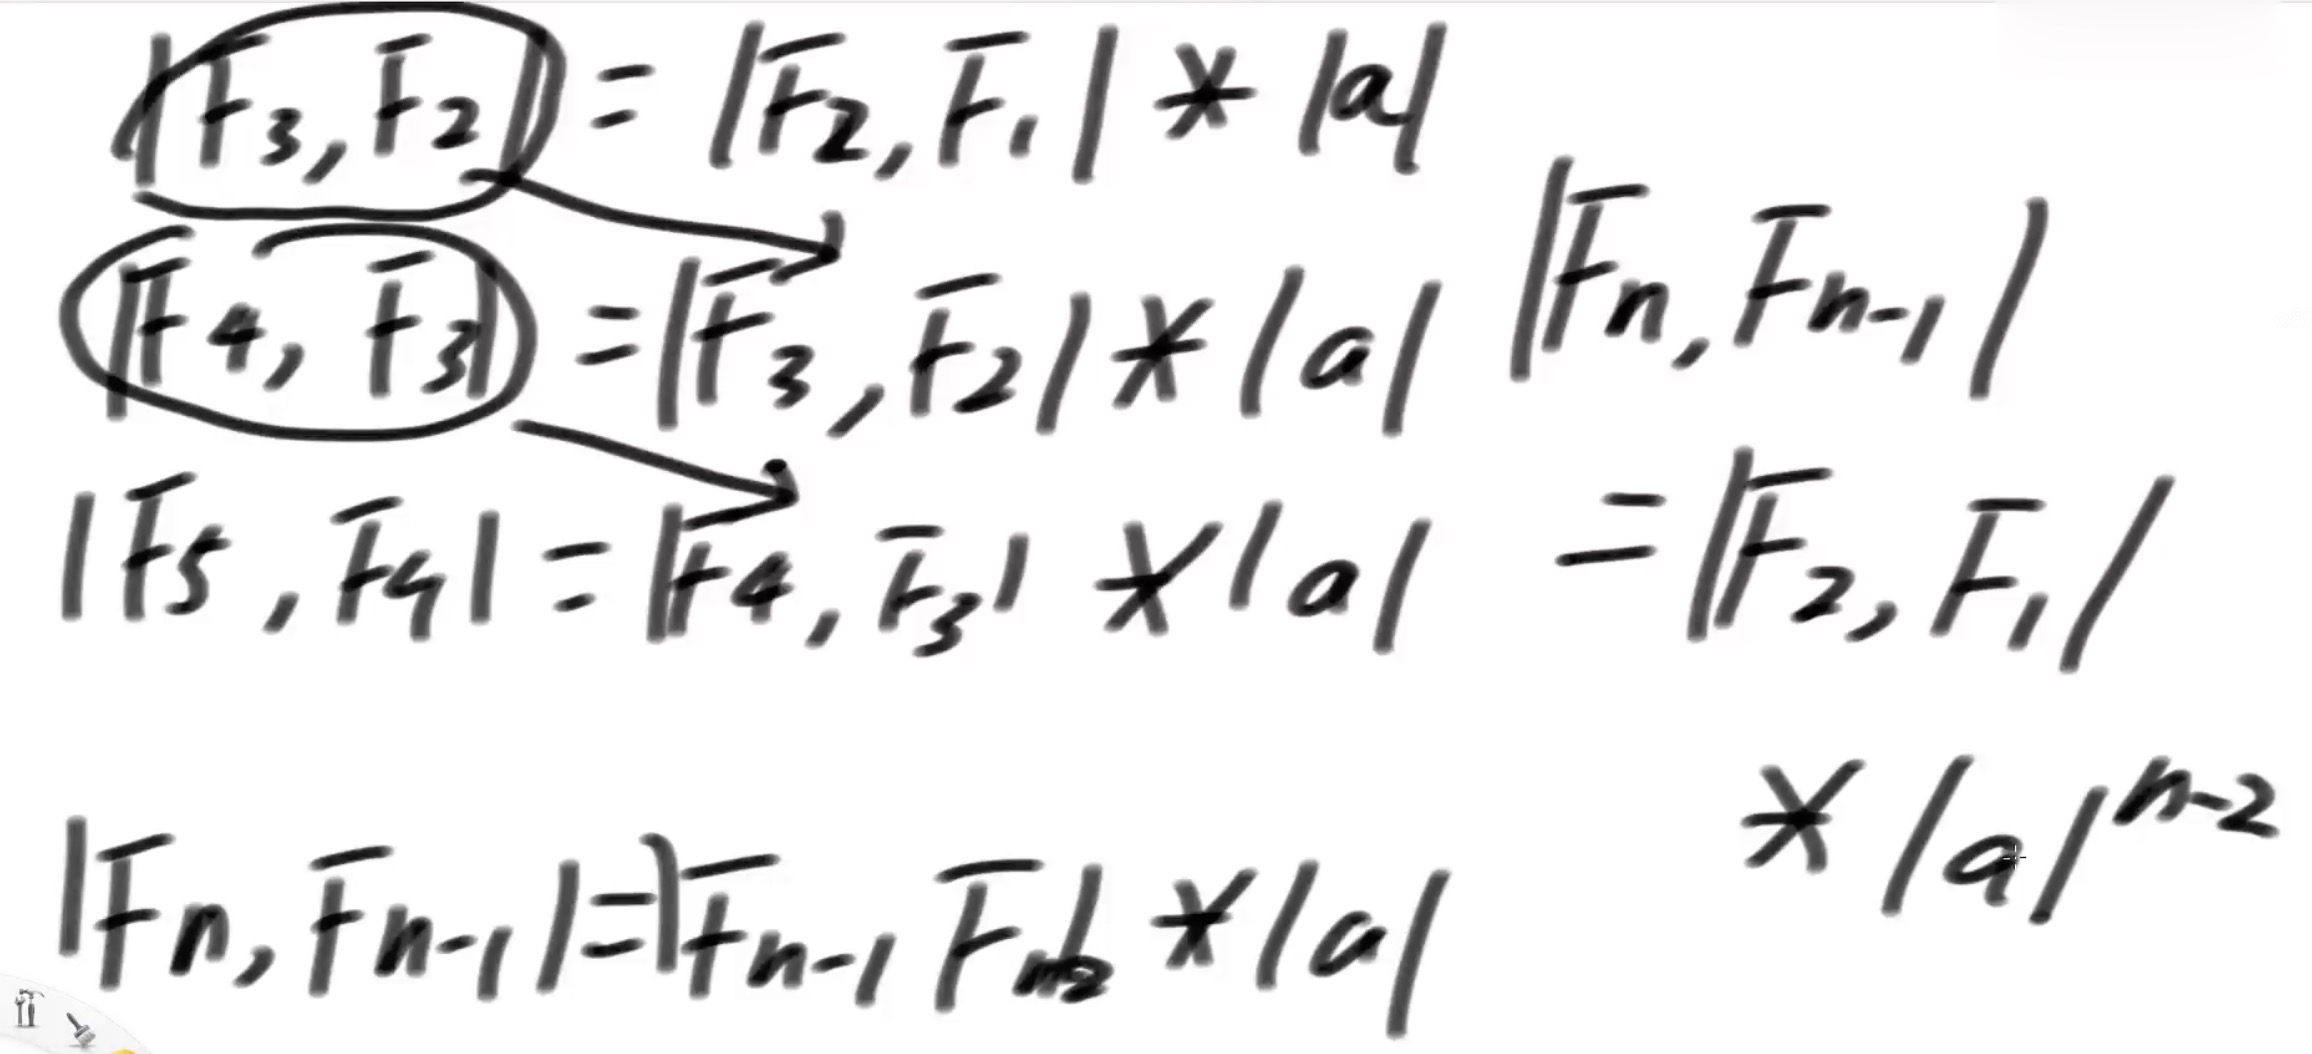 |F3, F2| = |F2, F1| * |a|
|F4, F3| = |F3, F2| * |a|
|F5, F4| = |F4, F3| * |a|
|Fn, Fn-1| = |Fn-1 Fn-2| * |a|
|Fn, Fn-1|
= |F2, F1|
* |a|^n-2